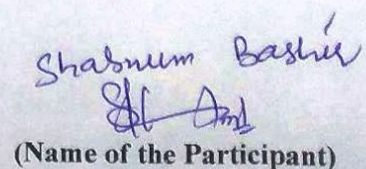 Shabnum Bashir
(Name of the Participant)